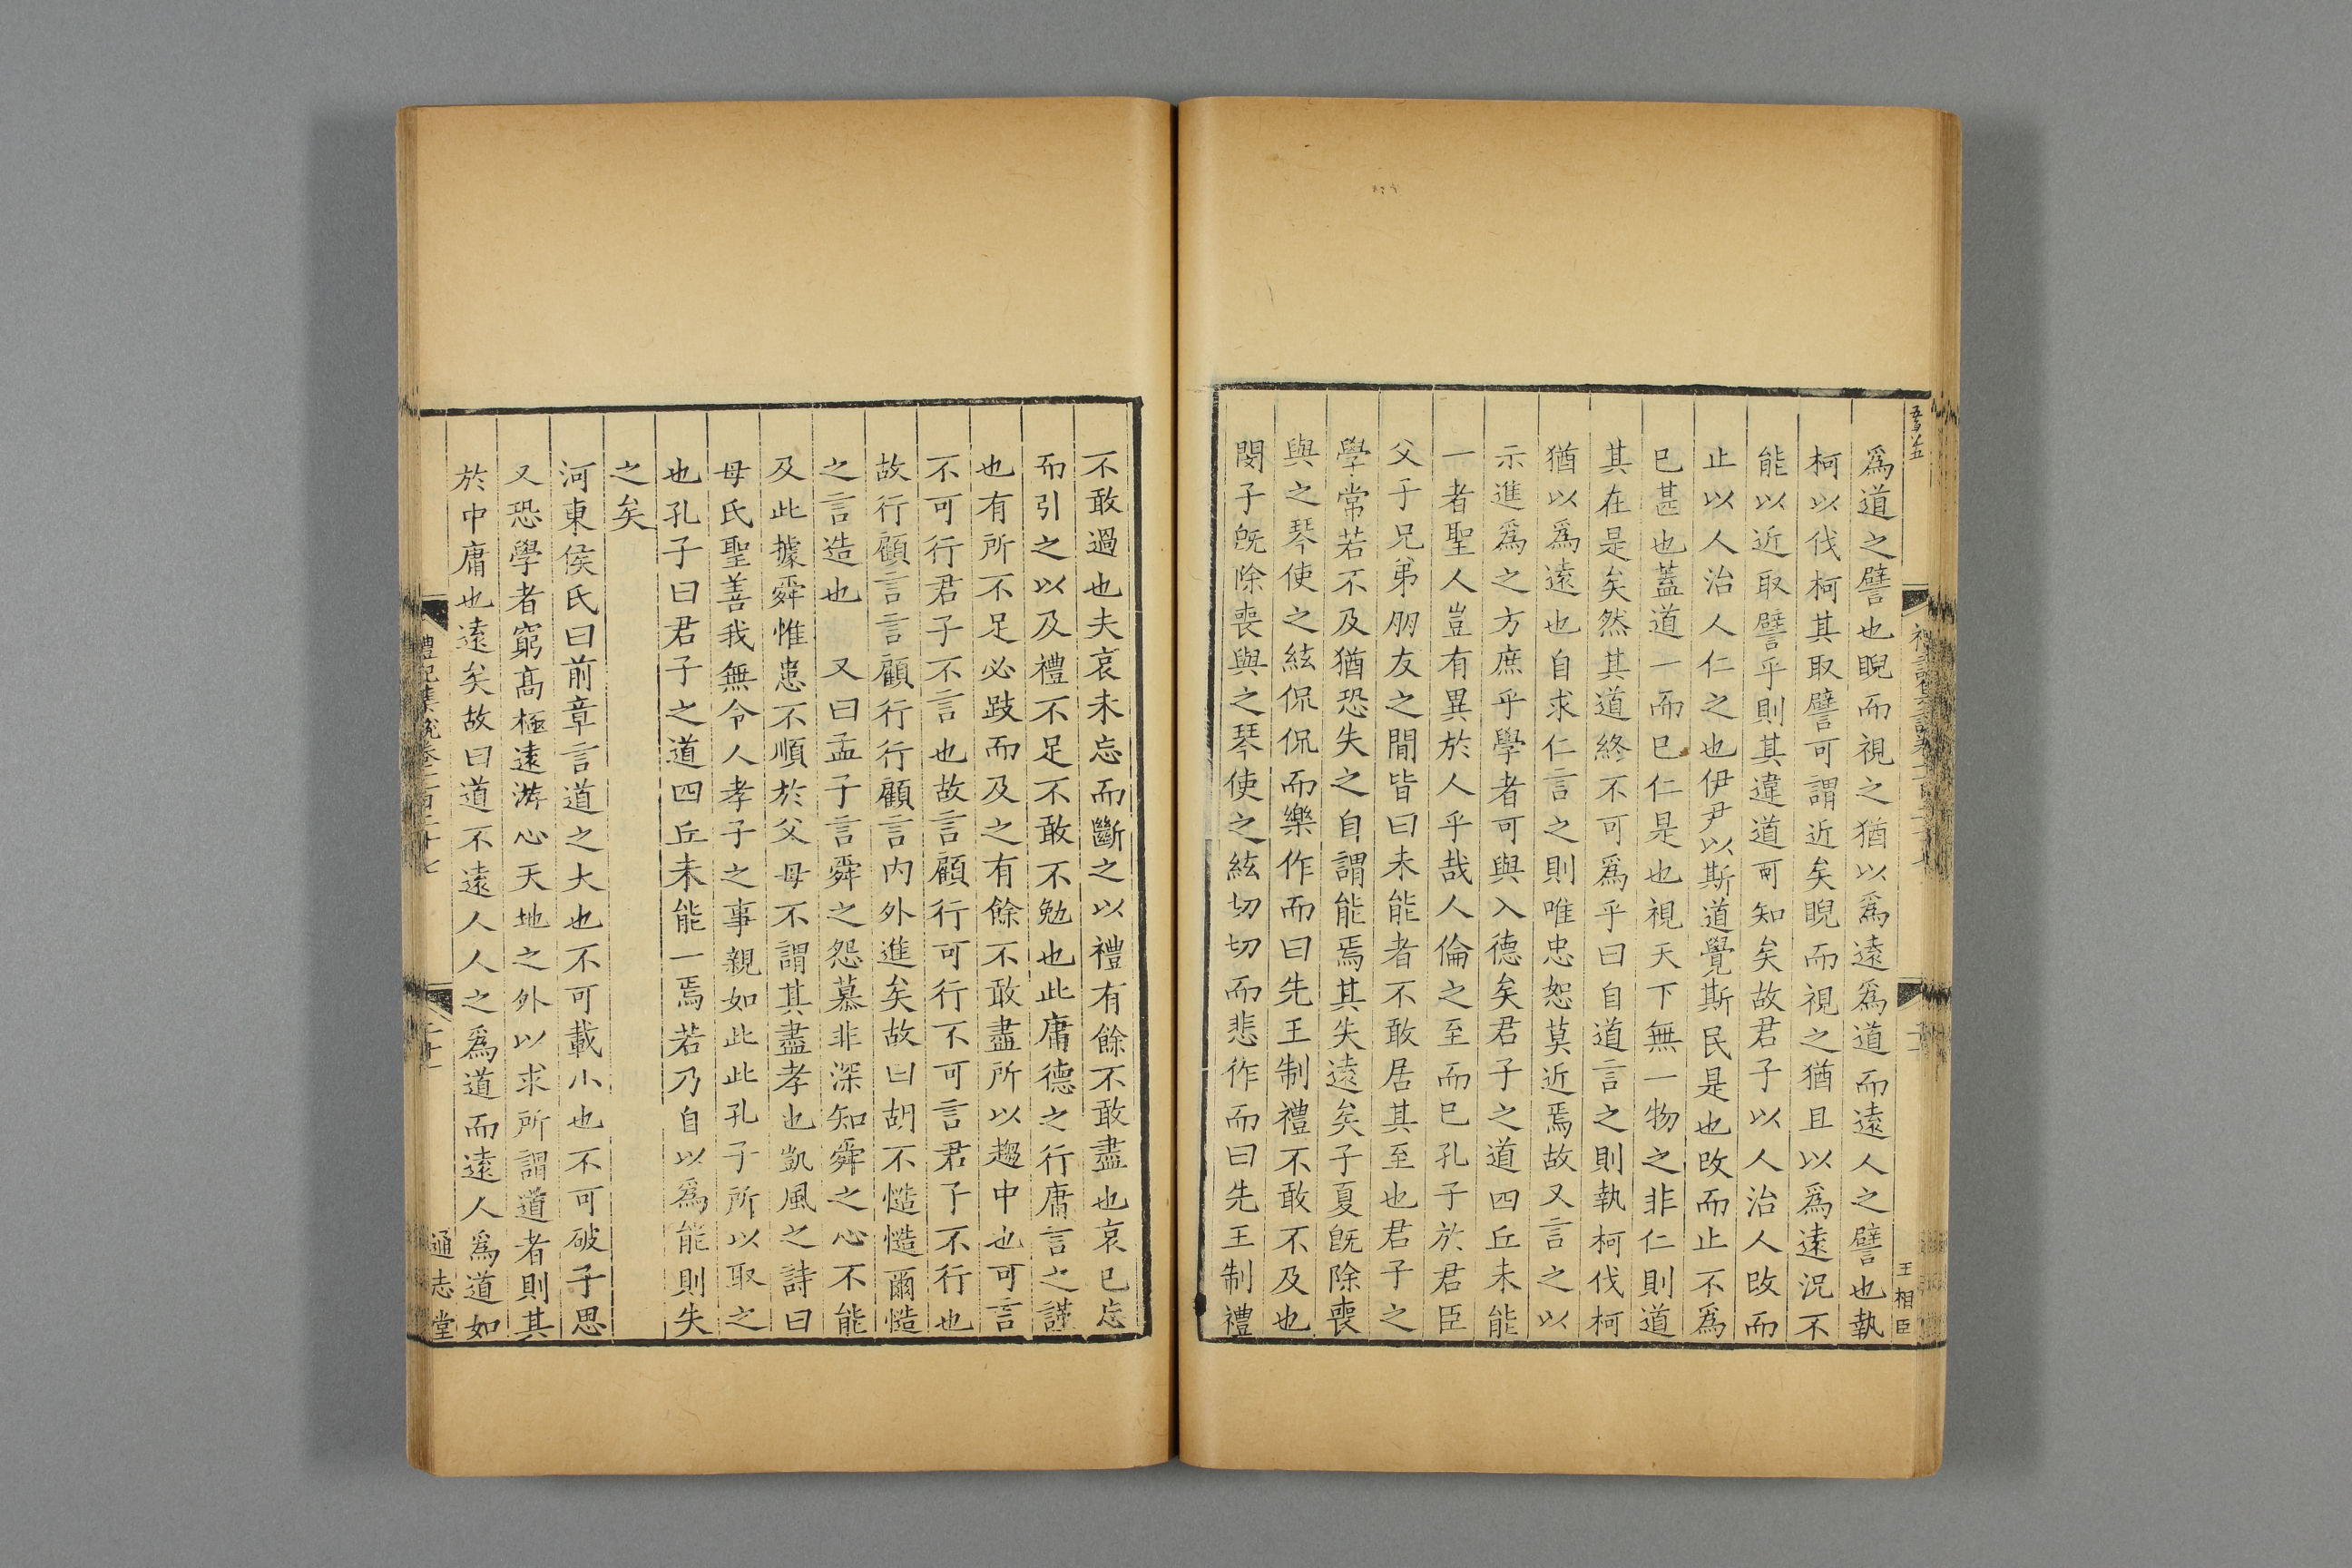 爲道之譬也睨而視之猶以爲遠爲道而遠人之譬也執
柯以伐柯其取譬可謂近矣睨而視之猶且以爲遠況不
能以近取譬乎則其違道可知矣故君子以人治人改而
止以人治人仁之也伊尹以斯道覺斯民是也改而止不爲
已甚也蓋道一而已仁是也視天下無一物之非仁則道
其在是矣然其道終不可爲乎曰自道言之則執柯伐柯
猶以爲遠也自求仁言之則唯忠恕莫近焉故又言之以
示進爲之方庶乎學者可與入德矣君子之道四丘未能
一者聖人豈有異於人乎哉人倫之至而已孔子於君臣
父子兄弟朋友之閒皆曰未能者不敢居其至也君子之
學常若不及猶恐失之自謂能焉其失遠矣子夏旣除喪
與之琴使之絃侃侃而樂作而曰先王制禮不敢不及也
閔子旣除喪與之琴使之絃切切而悲作而曰先王制禮
王相臣
不敢過也夫哀未忘而斷之以禮有餘不敢盡也哀已忘
而引之以及禮不足不敢不勉也此庸德之行庸言之謹
也有所不足必跂而及之有餘不敢盡所以趨中也可言
不可行君子不言也故言顧行可行不可言君子不行也
故行顧言言顧行行顧言內外進矣故曰胡不慥慥爾慥
之言造也　又曰孟子言舜之怨慕非深知舜之心不能
及此據舜惟患不順於父母不謂其盡孝也凱風之詩曰
母氏聖善我無令人孝子之事親如此此孔子所以取之
也孔子曰君子之道四丘未能一焉若乃自以爲能則失
之矣
河東侯氏曰前章言道之大也不可載小也不可破子思
又恐學者窮髙極遠游心天地之外以求所謂道者則其
於中庸也遠矣故曰道不遠人人之爲道而遠人爲道如
禮記集說卷一百二十七
二十一
通志堂